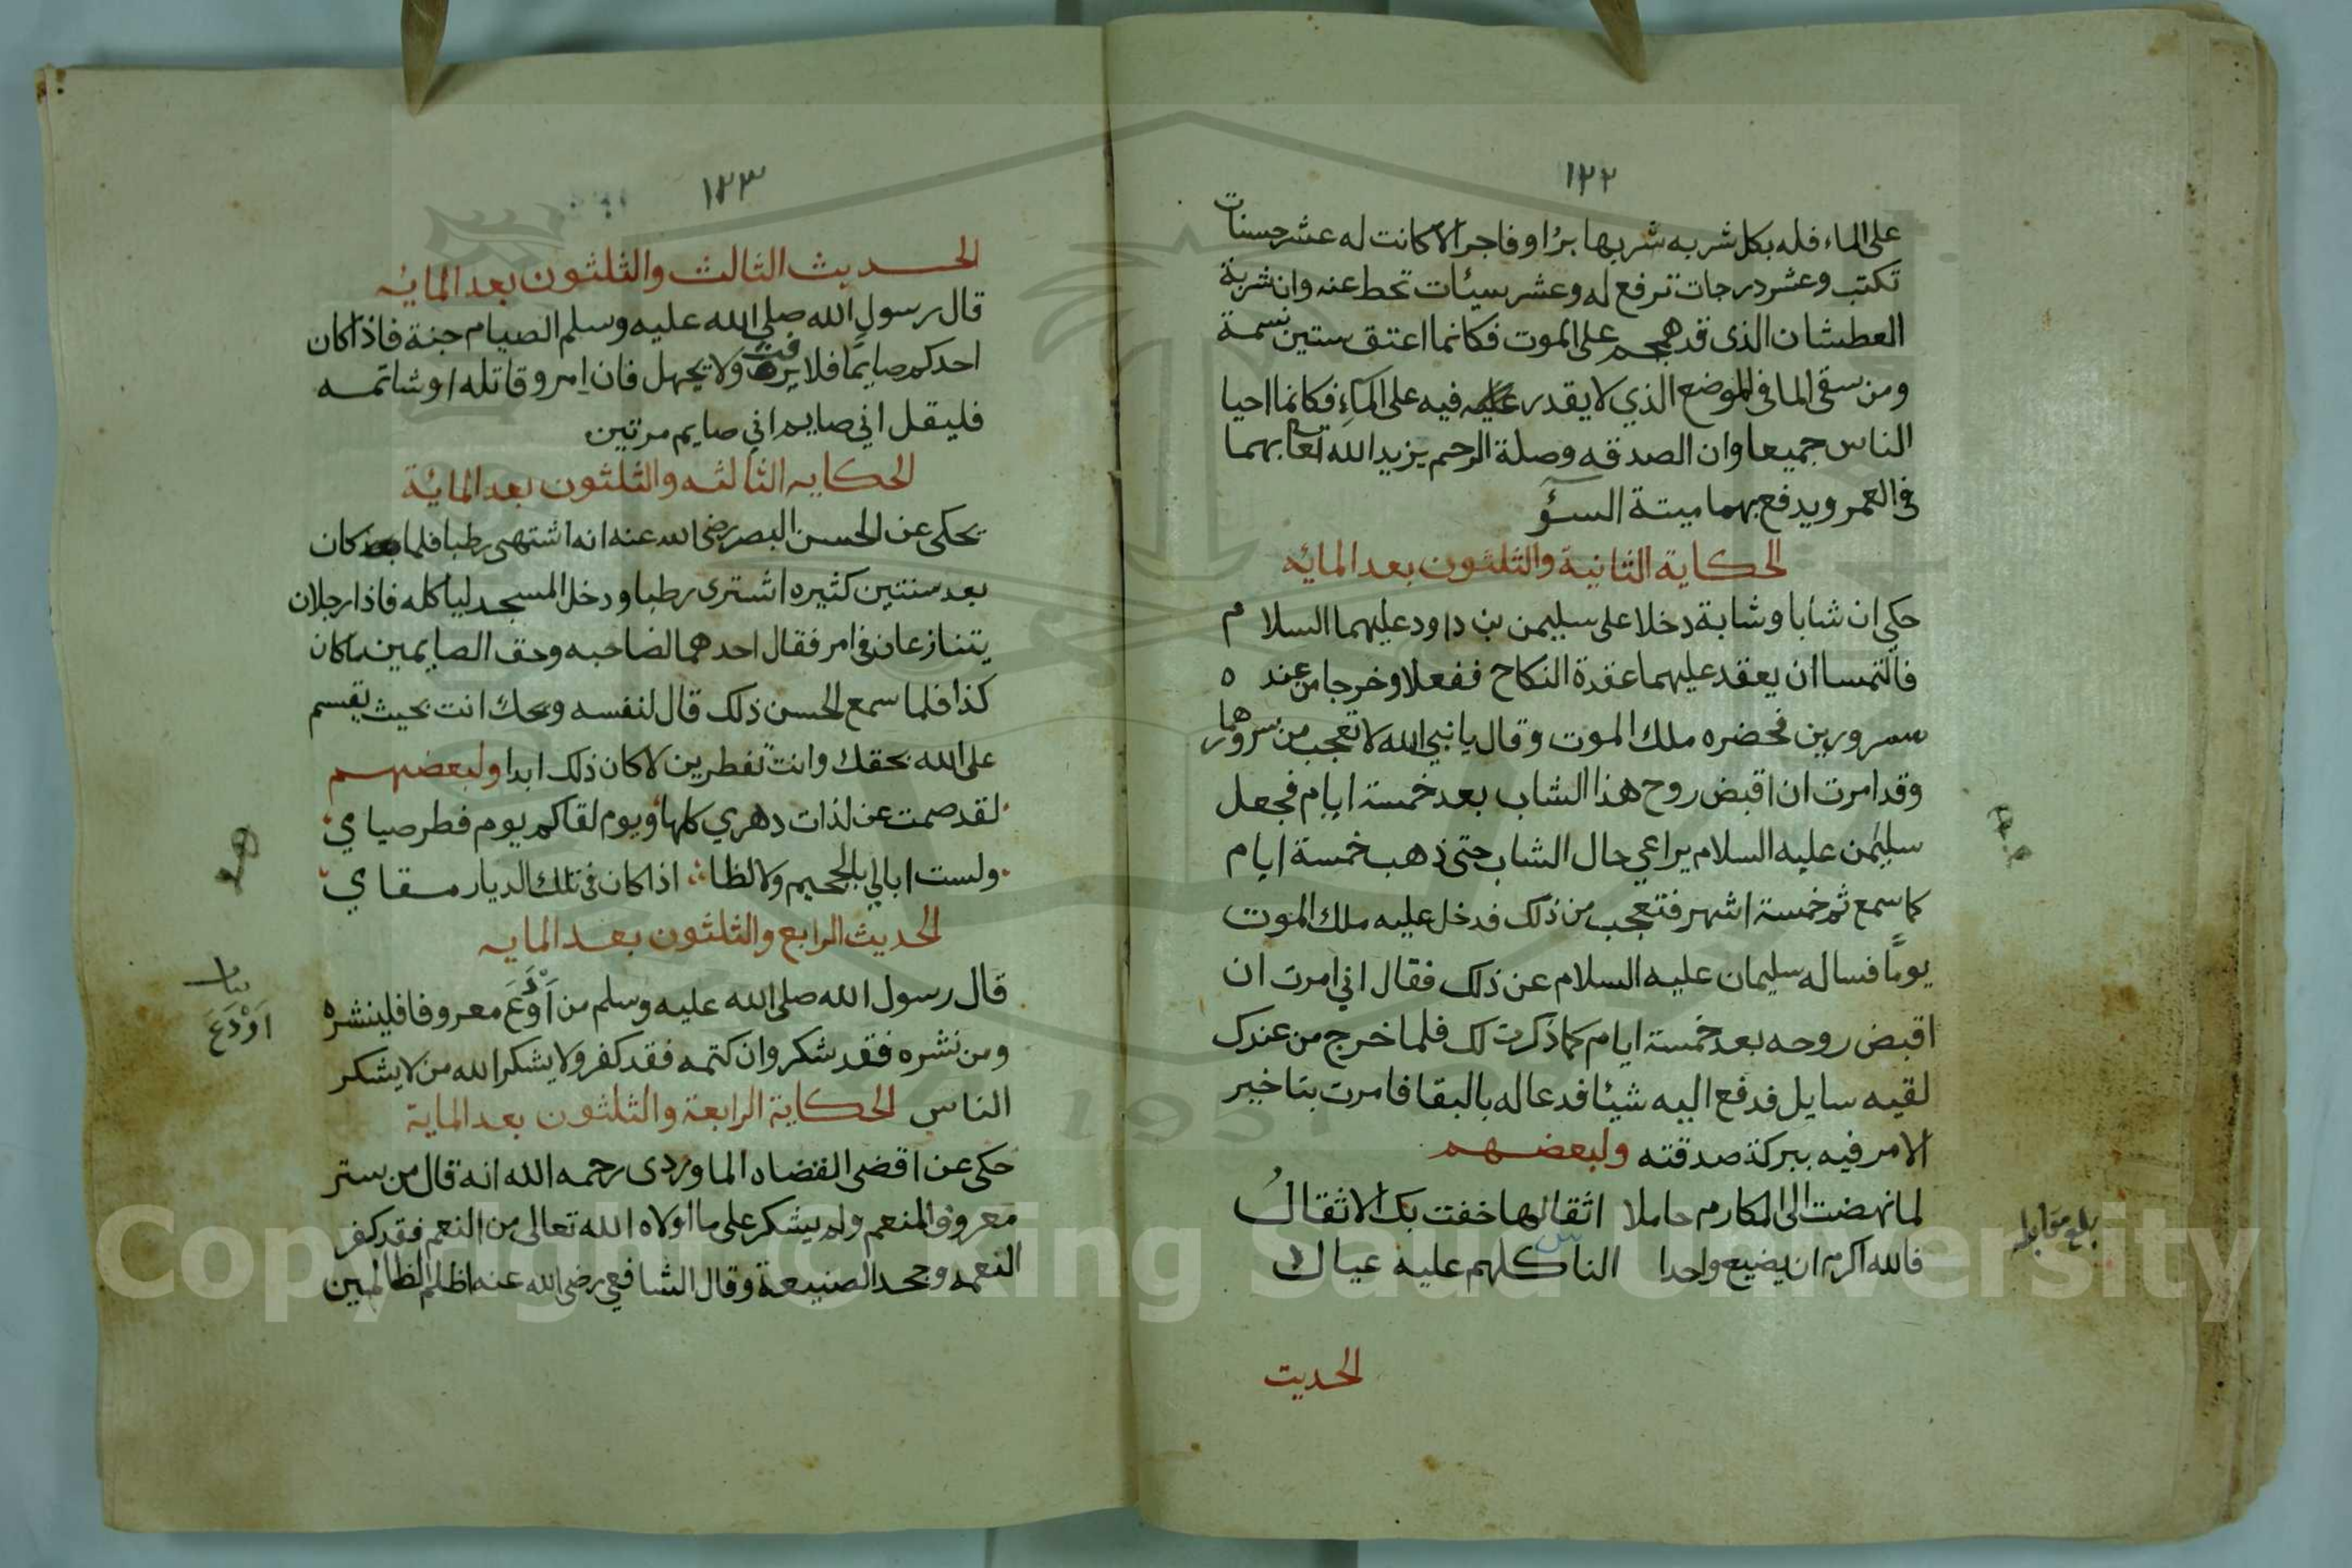 ١٢٢
على الماء فله بكل شربه شربها برا او فاجر الا كانت له عشر حسنات
تكتب وعشر درجات ترفع له وعشر سيئات تحط عنه وان شربة
العطشان الذى قد هجم على الموت فكانما اعتق ستين نسمة
ومن سقى الما فى الموضع الذي لا يقدر فيه على المآءِ فكانما احيا
الناس جميعا وان الصدقه وصلة الرحم يزيد الله تعا بهما
فى العمر ويدفع بهما ميتة السوٓء
الحكاية الثانية والثلثون بعد المائه
حكي ان شابا وشابة دخلا على سليمن بن داود عليهما السلام
فالتمسا ان يعقد عليهما عقدة النكاح ففعلا وخرجا من عنده
مسرورين فحضره ملك الموت وقال يا نبي الله لا تعجب من سرورهما
وقد امرت ان اقبض روح هذا الشاب بعد خمسة ايام فجعل
سليمن عليه السلام يراعي حال الشاب حتى ذهب خمسة ايام
كما سمع ثم خمسة اشهر فتعجب من ذلك فدخل عليه ملك الموت
يومًا فساله سليمان عليه السلام عن ذلك فقال اني امرت ان
اقبض روحه بعد خمسة ايام كما ذكرت لك فلما خرج من عندك
لقيه سايل فدفع اليه شيئا فدعا له بالبقا فامرت بتاخير
الامر فيه ببركة صدقته ولبعضهم
لما نهضت الى المكارم حاملا اثقالها خفت بك الاثقالُ
فالله اكرم ان يضيع واحدا الناس كلهم عليه عيال
بلغ مقابله
الحديث
١٢٣
الحديث الثالث والثلثون بعد المايه
قال رسول الله صلى الله عليه وسلم الصيام جنة فاذا كان
احدكم صايمًا فلا يرفث ولا يجهل فان امرو قاتله او شاتمه
فليقل اني صايم اني صايم مرتين
الحكايه الثالثه والثلثون بعد المائة
يحكى عن الحسن البصر رضى الله عنه انه اشتهى رطبا فلما كان
بعد سنتين كثيره اشترى رطبا ودخل المسجد لياكله فاذا رجلان
يتنازعان فى امر فقال احدهما لصاحبه وحق الصايمين ما كان
كذا فلما سمع الحسن ذلك قال لنفسه ويحك انت بحيث يقسم
على الله بحقك وانت تفطرين لا كان ذلك ابدا ولبعضهم
لقد صمت عن لذات دهري كلها ويوم لقاكم يوم فطر صيامي
ولست ابالي بالجحيم ولا لظا اذا كان فى تلك الديار مقامي
الحديث الرابع والثلثون بعد المايه
قال رسول الله صلى الله عليه وسلم من اَوْدَعَ معروفا فلينشره
ومن نشره فقد شكر وان كتمه فقد كفر ولا يشكر الله من لا يشكر
الناس الحكاية الرابعة والثلثون بعد الماية
حكى عن اقضى القضاه الماوردى رحمه الله انه قال من ستر
معروف المنعم ولم يشكر على ما اولاه الله تعالى من النعم فقد كفر
النعمه وجحد الصنيعة وقال الشافعي رضى الله عنه اظلم الظالمين
بيان
اَوْدَعَ
1957
Copyright © King Saud University